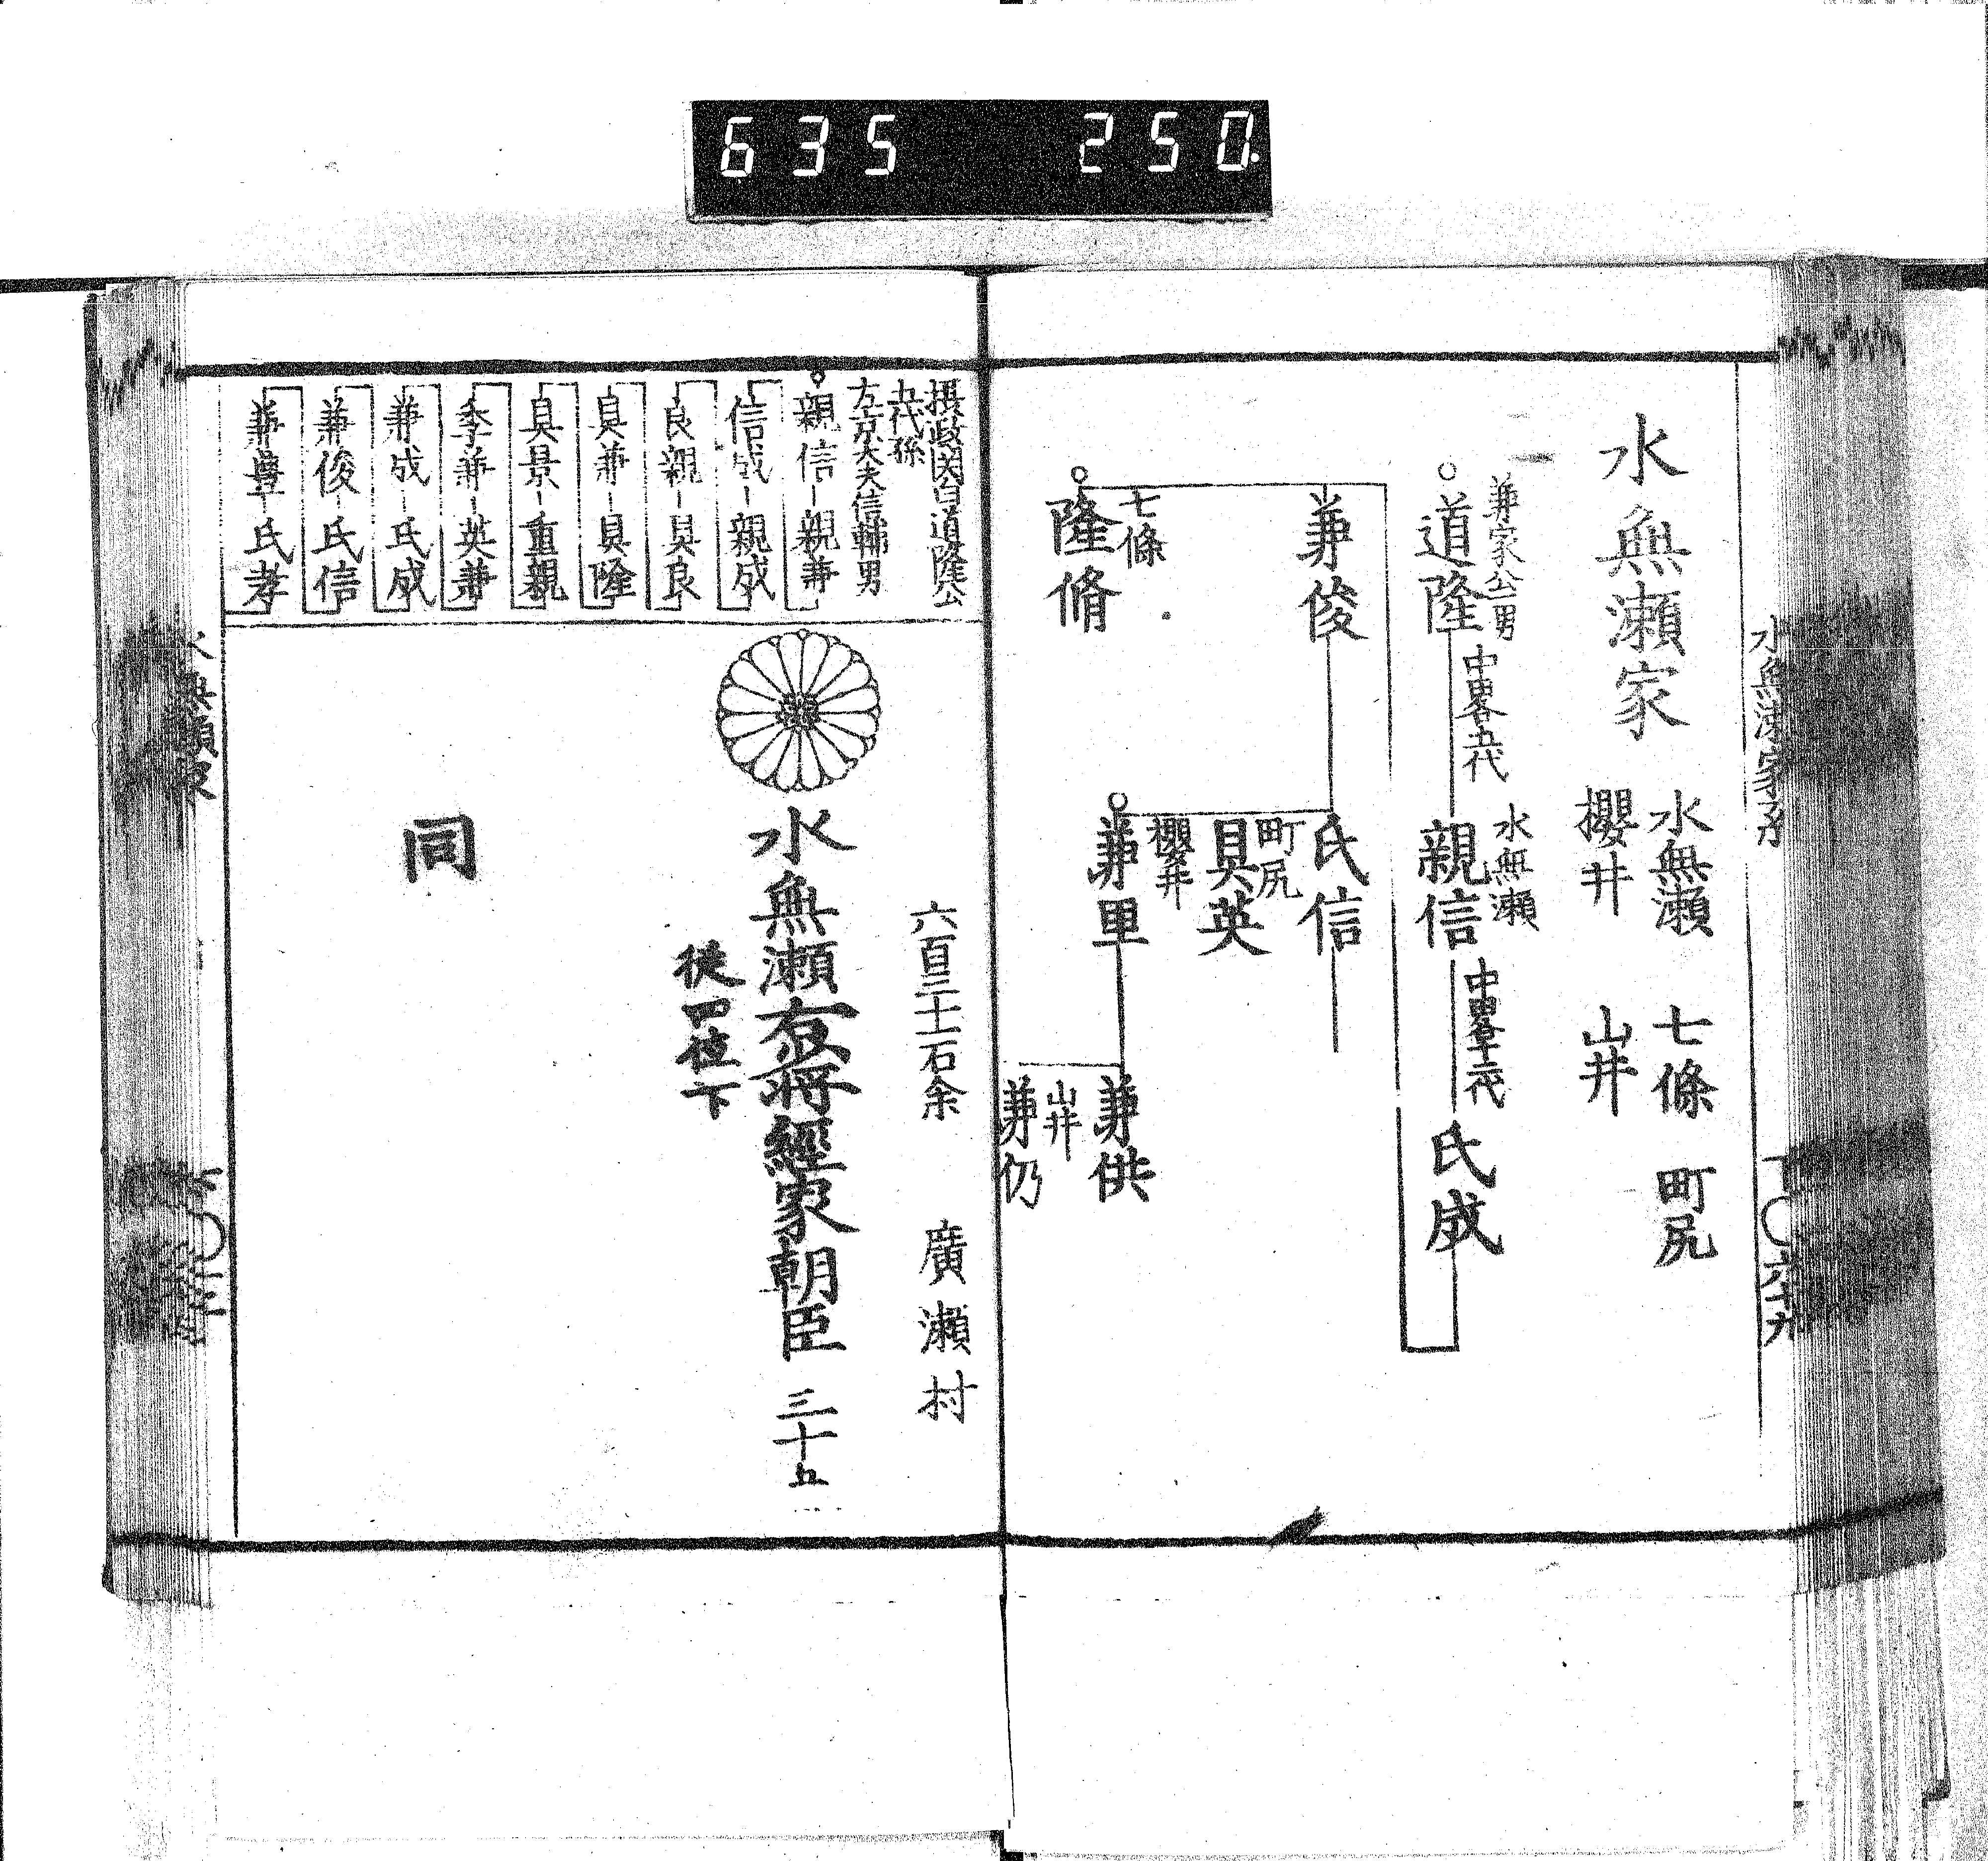 635 250.
水無瀬家
水無瀬 七條 町尻
櫻井 山井
兼家公男
道隆 中畧五代
水無瀬
親信 中畧十二代
氏成
兼俊
氏信
町尻
具英
櫻井
兼里
兼供
山井
兼仍
七條
隆脩
摂政関白道隆公
五代孫
左京大夫信輔男
親信 親兼
信成 親成
良親 具良
具兼 具隆
具景 重親
季兼 英兼
兼成 氏成
兼俊 氏信
兼豊 氏孝
六百三十一石余 廣瀬村
水無瀬右少将經家朝臣 三十五
従四位下
同
水無瀬家